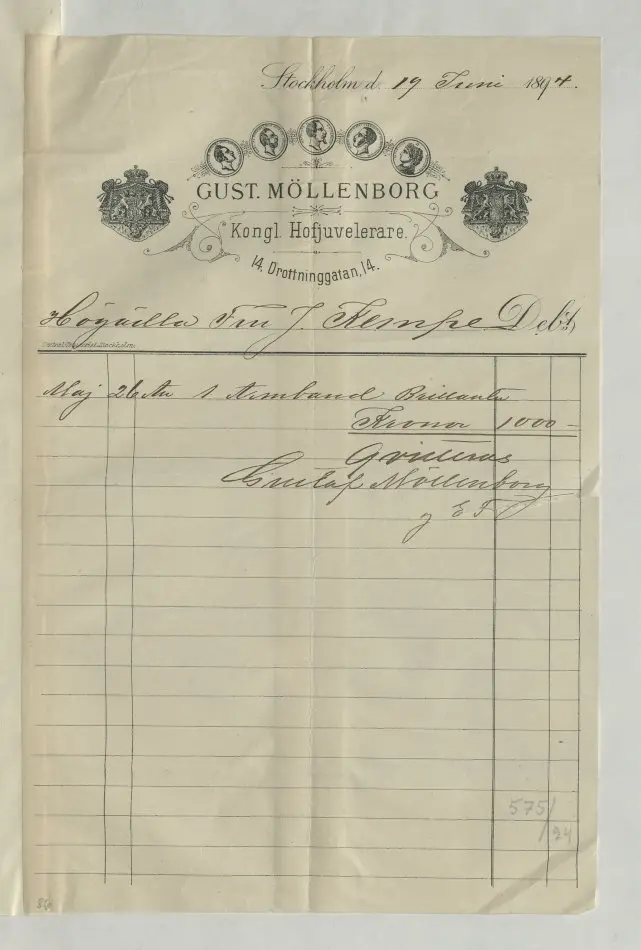 Stockholm d. 19 Juni 1894.
GUST. MÖLLENBORG
Kongl. Hofjuvelerare.
14, Drottninggatan, 14.
Högädla Fru J. Kempe Debt,
Maj 26 1 Armband Brillanter
Kronor 1000 –
Qvitteras
Gustaf Möllenborg
g E F
575/
/94